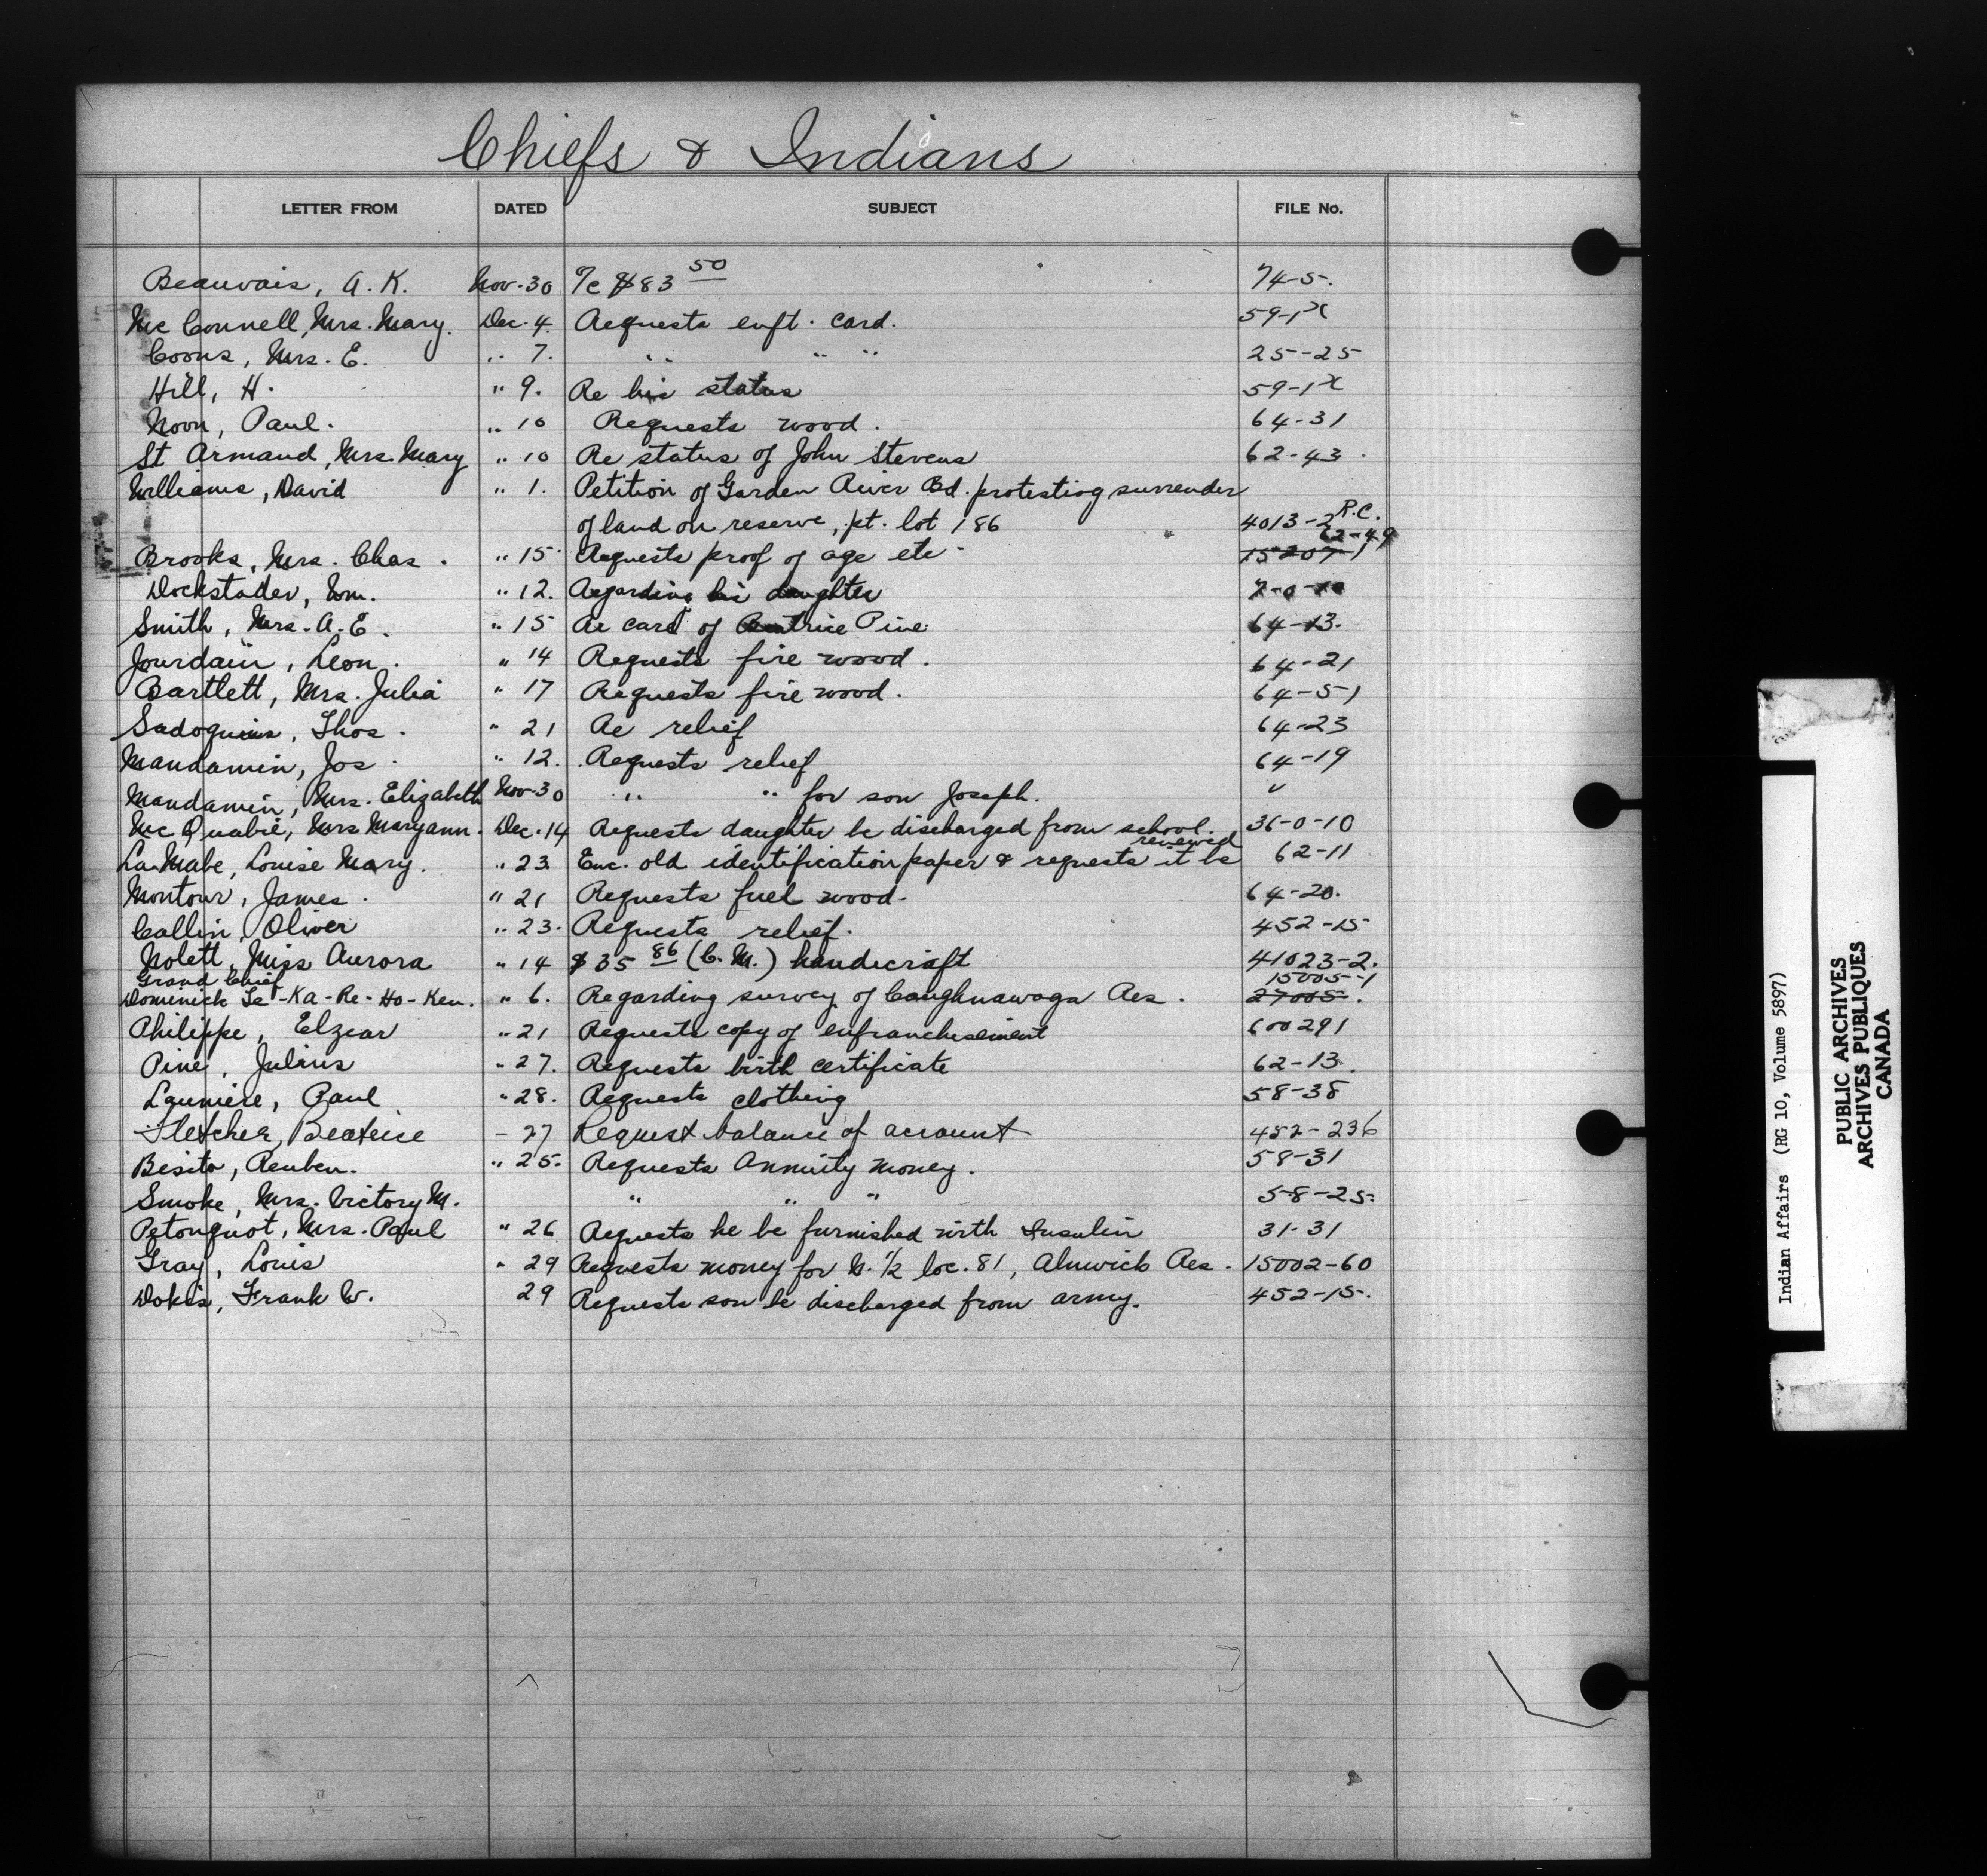 Chiefs & Indians
LETTER FROM DATED SUBJECT FILE No.
Beauvais, A. K. Nov. 30 T/c $83 50 74-5.
McConnell, Mrs. Mary. Dec. 4. Requests enft. card. 59-1 x
Coons, Mrs. E. " 7. " " " 25-25
Hill, H. " 9. Re his status 59-1 x
Noon, Paul. " 10 Requests wood. 64-31
St Armand, Mrs. Mary " 10 Re status of John Stevens 62-43.
Williams, David " 1. Petition of Garden River Bd. protesting surrender
of land on reserve, pt. lot 186 4013-2 R.C.
62-49
Brooks, Mrs. Chas. " 15 Requests proof of age etc. 15207-1
Dockstader, Wm. " 12. Regarding his daughter
Smith, Mrs. A. E. " 15 Re card of Beatrice Pine 64-13.
Jourdain, Leon. " 14 Requests fire wood. 64-21
Bartlett, Mrs. Julia " 17 Requests fire wood. 64-51
Sadoquis, Thos. " 21 Re relief 64-23
Mandamin, Jos. " 12. Requests relief 64-19
Mandamin, Mrs. Elizabeth Nov. 30 " " for son Joseph. "
McQuabie, Mrs Maryann. Dec. 14 Requests daughter be discharged from school. 36-0-10
renewed
LaMabe, Louise Mary. " 23 Enc. old identification paper & requests it be 62-11
Montour, James. " 21 Requests fuel wood. 64-20.
Collin, Oliver " 23. Requests relief. 452-15
Nolett, Miss Aurora " 14 $35 86 (C. M.) handicraft 41023-2.
Grand Chief 15005-1
Dominick Te-Ka-Re-Ho-Ken. " 6. Regarding survey of Caughnawaga Res. 27005.
Philippe, Elzear " 21 Requests copy of enfranchisement 600291
Pine, Julius " 27. Requests birth certificate 62-13.
Launiere, Paul " 28. Requests clothing 58-38
Fletcher, Beatrice - 27 Request balance of account 452-236
Besito, Reuben. " 25. Requests Annuity money. 58-31
Smoke, Mrs. Victory M. " " " 58-25
Petonquot, Mrs. Paul " 26 Requests he be furnished with Insulin 31-31
Gray, Louis " 29 Requests money for N. 1/2 loc. 81, Alnwick Res. 15002-60
Dokis, Frank W. 29 Requests son be discharged from army. 452-15.
Indian Affairs (RG 10, Volume 5897)
PUBLIC ARCHIVES
ARCHIVES PUBLIQUES
CANADA